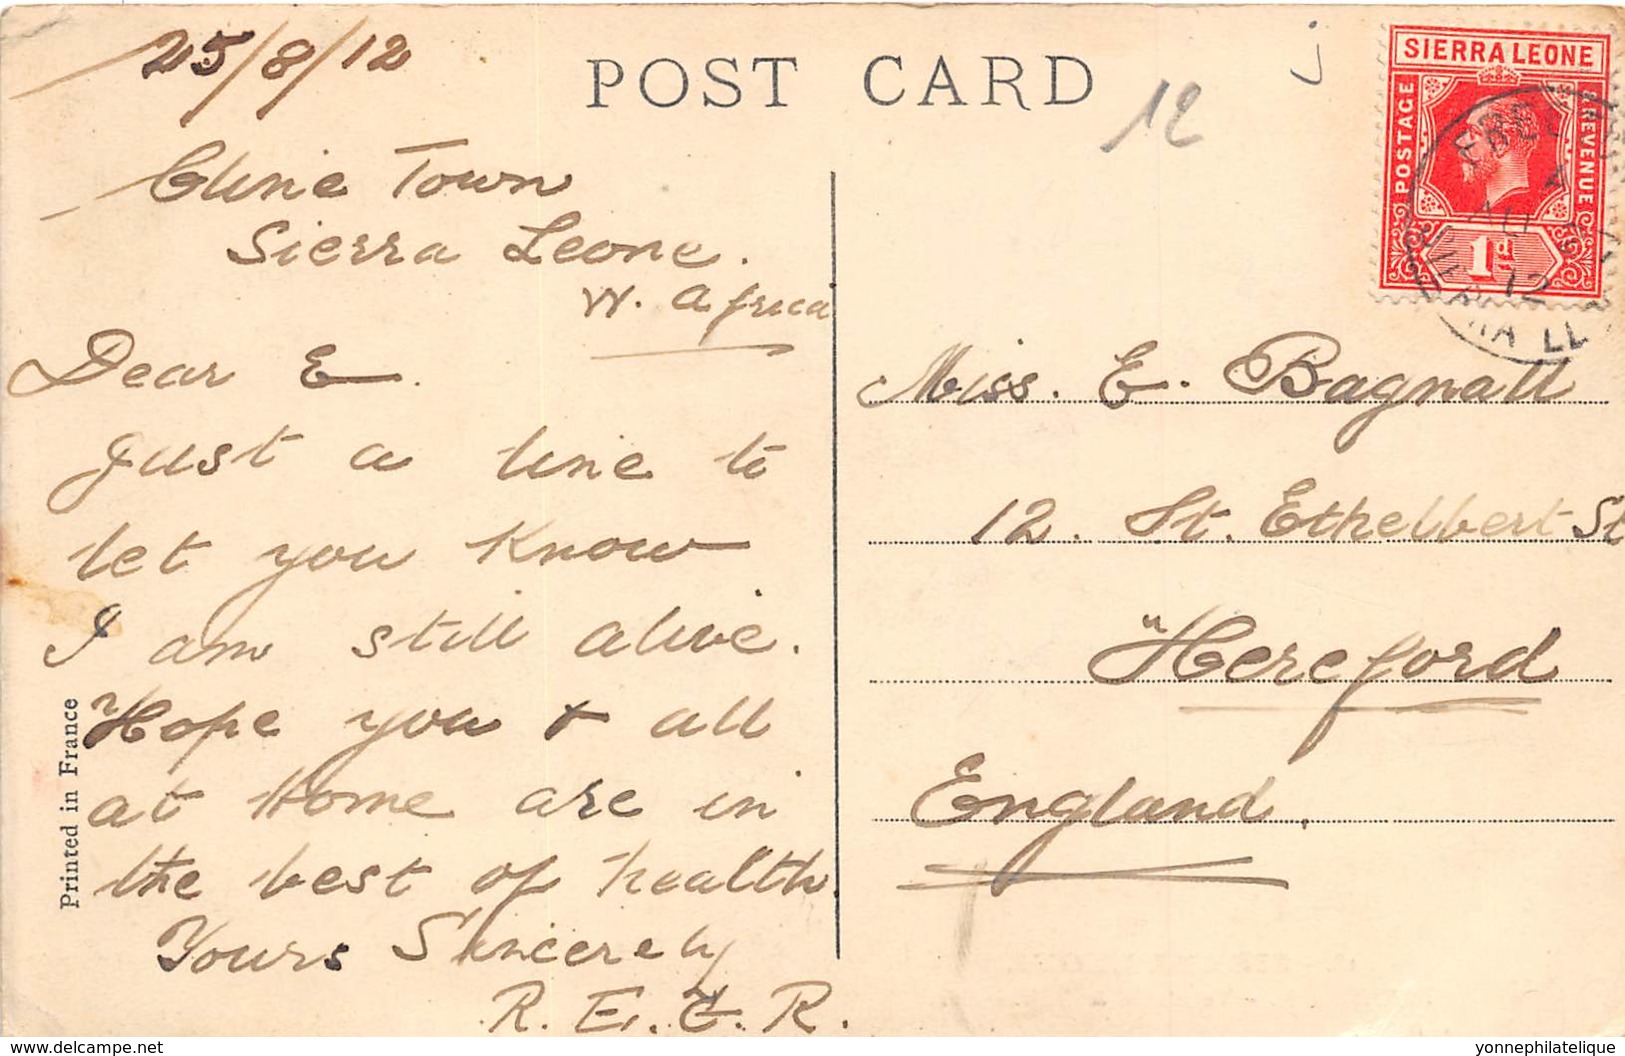 25/8/12
POST CARD
12
SIERRA LEONE
POSTAGE
& REVENUE
1d
12
Cline Town
Sierra Leone.
W. Africa
Dear E.
Just a line to
let you know
I am still alive.
Hope you & all
at Home are in
the best of health.
Yours Sincerely
R. E. G. R.
Miss. E. Bagnall
12. St. Ethelbert St
Hereford
England.
Printed in France
© delcampe.net
yonnephilatelique